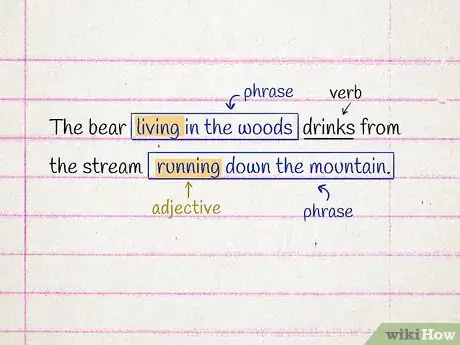 phrase
verb
The bear living in the woods drinks from
the stream running down the mountain.
adjective
phrase
wikiHow